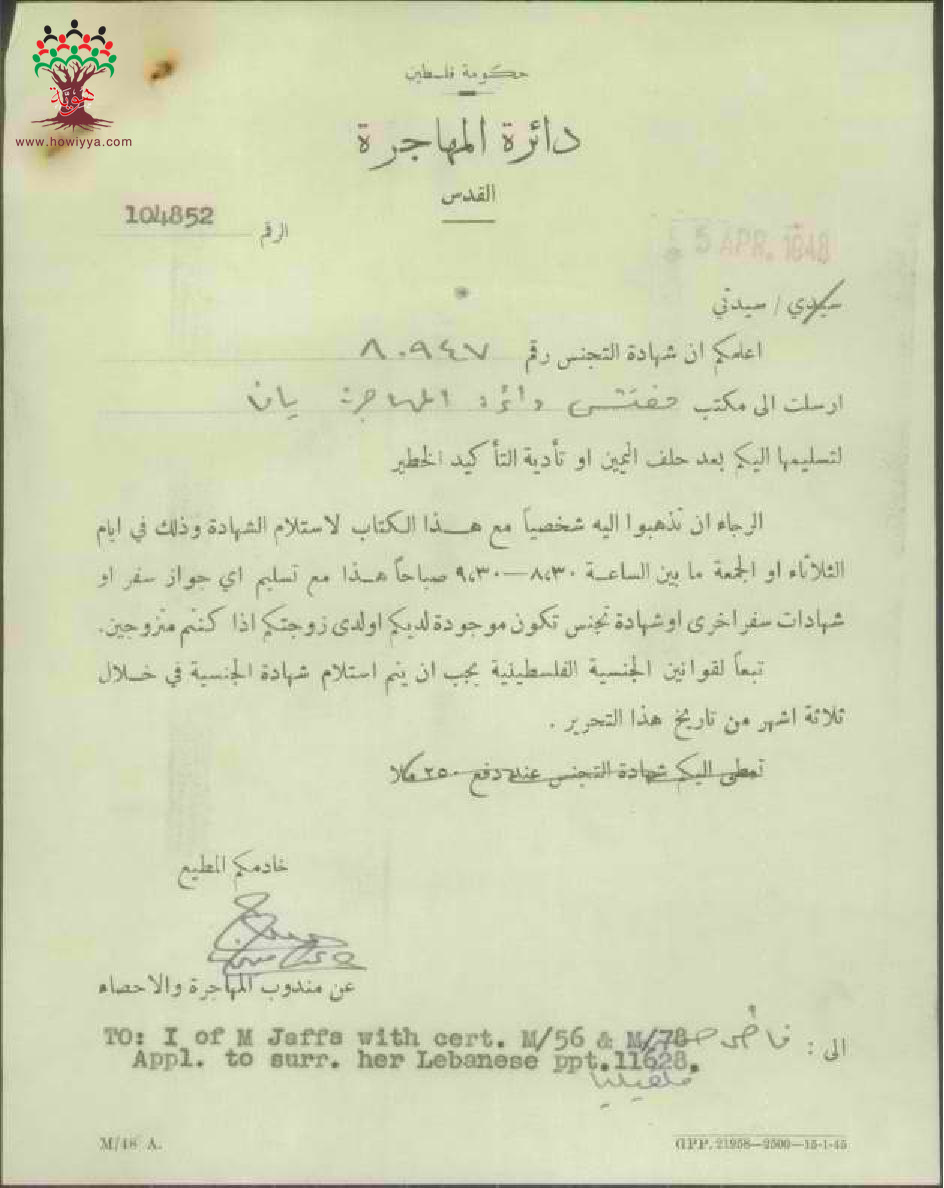 هوية
www.howiyya.com
حكومة فلسطين
دائرة المهاجرة
القدس
104852 الرقم
5 APR. 1948
سيدي / سيدتي
اعلمكم ان شهادة التجنس رقم ٨٠٩٤٧
ارسلت الى مكتب مفتش دائرة المهاجرة يافا
لتسليمها اليكم بعد حلف اليمين او تأدية التأكيد الخطير
الرجاء ان تذهبوا اليه شخصياً مع هذا الكتاب لاستلام الشهادة وذلك في ايام
الثلاثاء او الجمعة ما بين الساعة ٨،٣٠—٩،٣٠ صباحاً هذا مع تسليم اي جواز سفر او
شهادات سفر اخرى او شهادة تجنس تكون موجودة لديكم او لدى زوجتكم اذا كنتم متزوجين.
تبعاً لقوانين الجنسية الفلسطينية يجب ان يتم استلام شهادة الجنسية في خلال
ثلاثة اشهر من تاريخ هذا التحرير .
تعطى اليكم شهادة التجنس عند دفع ٢٥٠ ملا
خادمكم المطيع
عن مندوب المهاجرة والاحصاء
الى :
TO: I of M Jaffa with cert. M/56 & M/78
Appl. to surr. her Lebanese ppt.11628.
قلقيليا
M/48 A.
GPP. 21958—2500—15-1-45